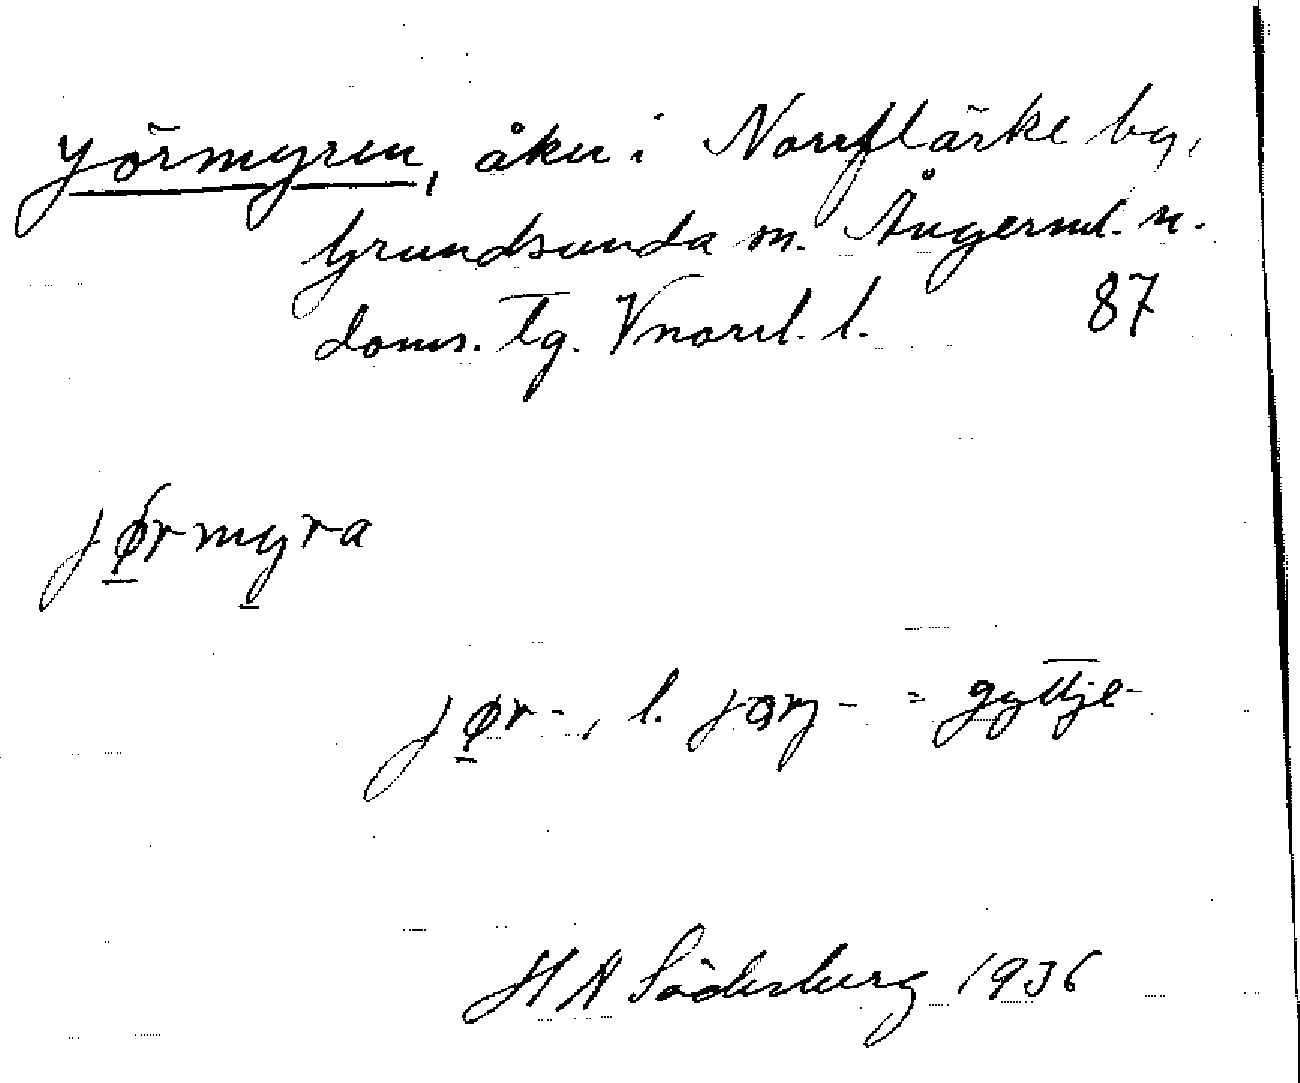 Jörmyren, åker i Norrflärke by,
Grundsunda sn. Ångerml. n.
doms. tg. Vnorrl. l. 87
jørmyra
jør-, l. jörj- = gyttje-
H A Söderberg 1936